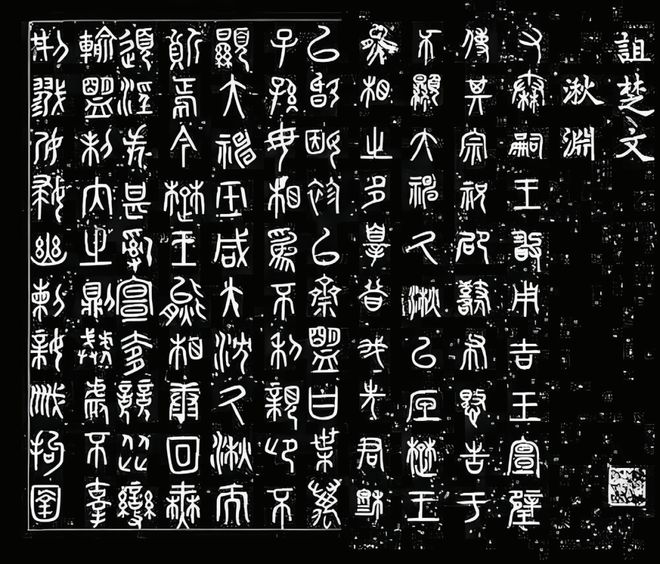 詛楚文
湫淵
又秦嗣王敢用吉玉宣璧
使其宗祝邵鼛布憖告于
不顯大神久湫以底楚王
熊相之多辠昔我先君穆
以婚姻袗以齋盟曰葉萬
子孫毋相為不利親卬不
顯大神巫咸大沈久湫而
質焉今楚王熊相康回無
道淫失甚亂宣奓競從變
輸盟制內之則暴虐不辜
刑戮孕婦幽刺親戚拘圉